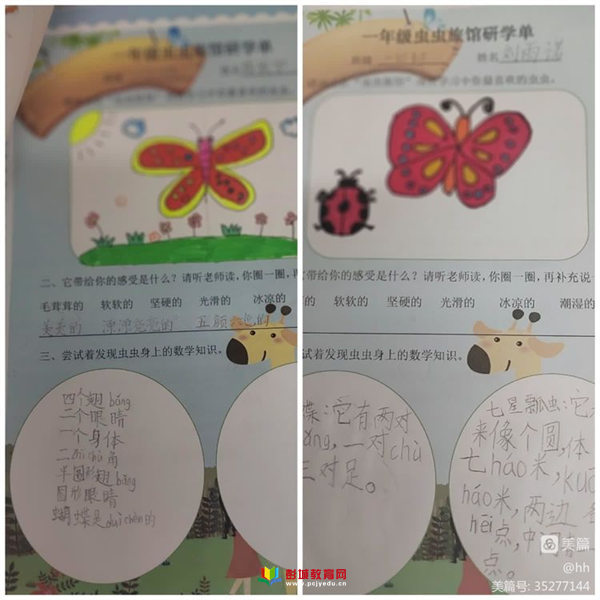 一年级虫虫旅馆研学单
二、它带给你的感受是什么？请听老师读，你圈一圈，再
毛茸茸的 软软的 坚硬的 光滑的 冰凉的
美美的 漂漂亮亮的 五颜六色的
三、尝试着发现虫虫身上的数学知识。
四个翅bǎng
二个眼睛
一个身体
二角
半圆形翅bǎng
圆形眼睛
蝴蝶是duìchèn的
一年级虫虫旅馆研学单
班级
姓名 刘雨诺
学习中你最喜欢的虫虫。
它带给你的感受是什么？请听老师读，你圈一圈，再补充说一
的 软软的 坚硬的 光滑的 冰凉的 潮湿的
试着发现虫虫身上的数学知识。
蝶：它有两对
bǎng，一对chù
三对足。
七星瓢虫：它
来像个圆，体
七háo米，kuān
háo米，两边各
hēi点，中
点。
彭城教育网
www.pcjyedu.cn
美篇
@hh
美篇号：35277144